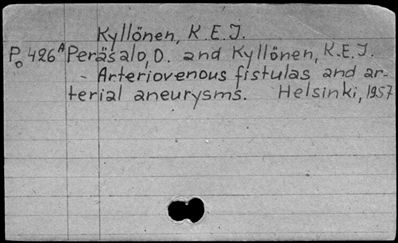 Kyllönen, K.E.J.
Po 426A Peräsalo, O. and Kyllönen, K.E.J.
- Arteriovenous fistulas and ar-
terial aneurysms. Helsinki, 1957